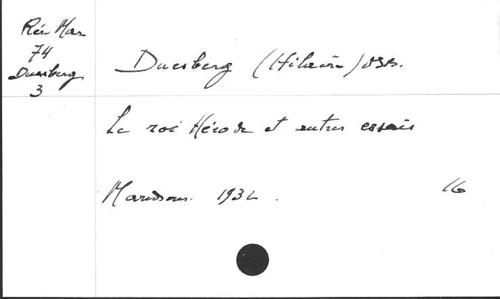 Rés. Mar.
74
Duesberg
3
Duesberg (Hilaire) OSB.
Le roi Hérode et autres essais
Maredsous. 1932.
16